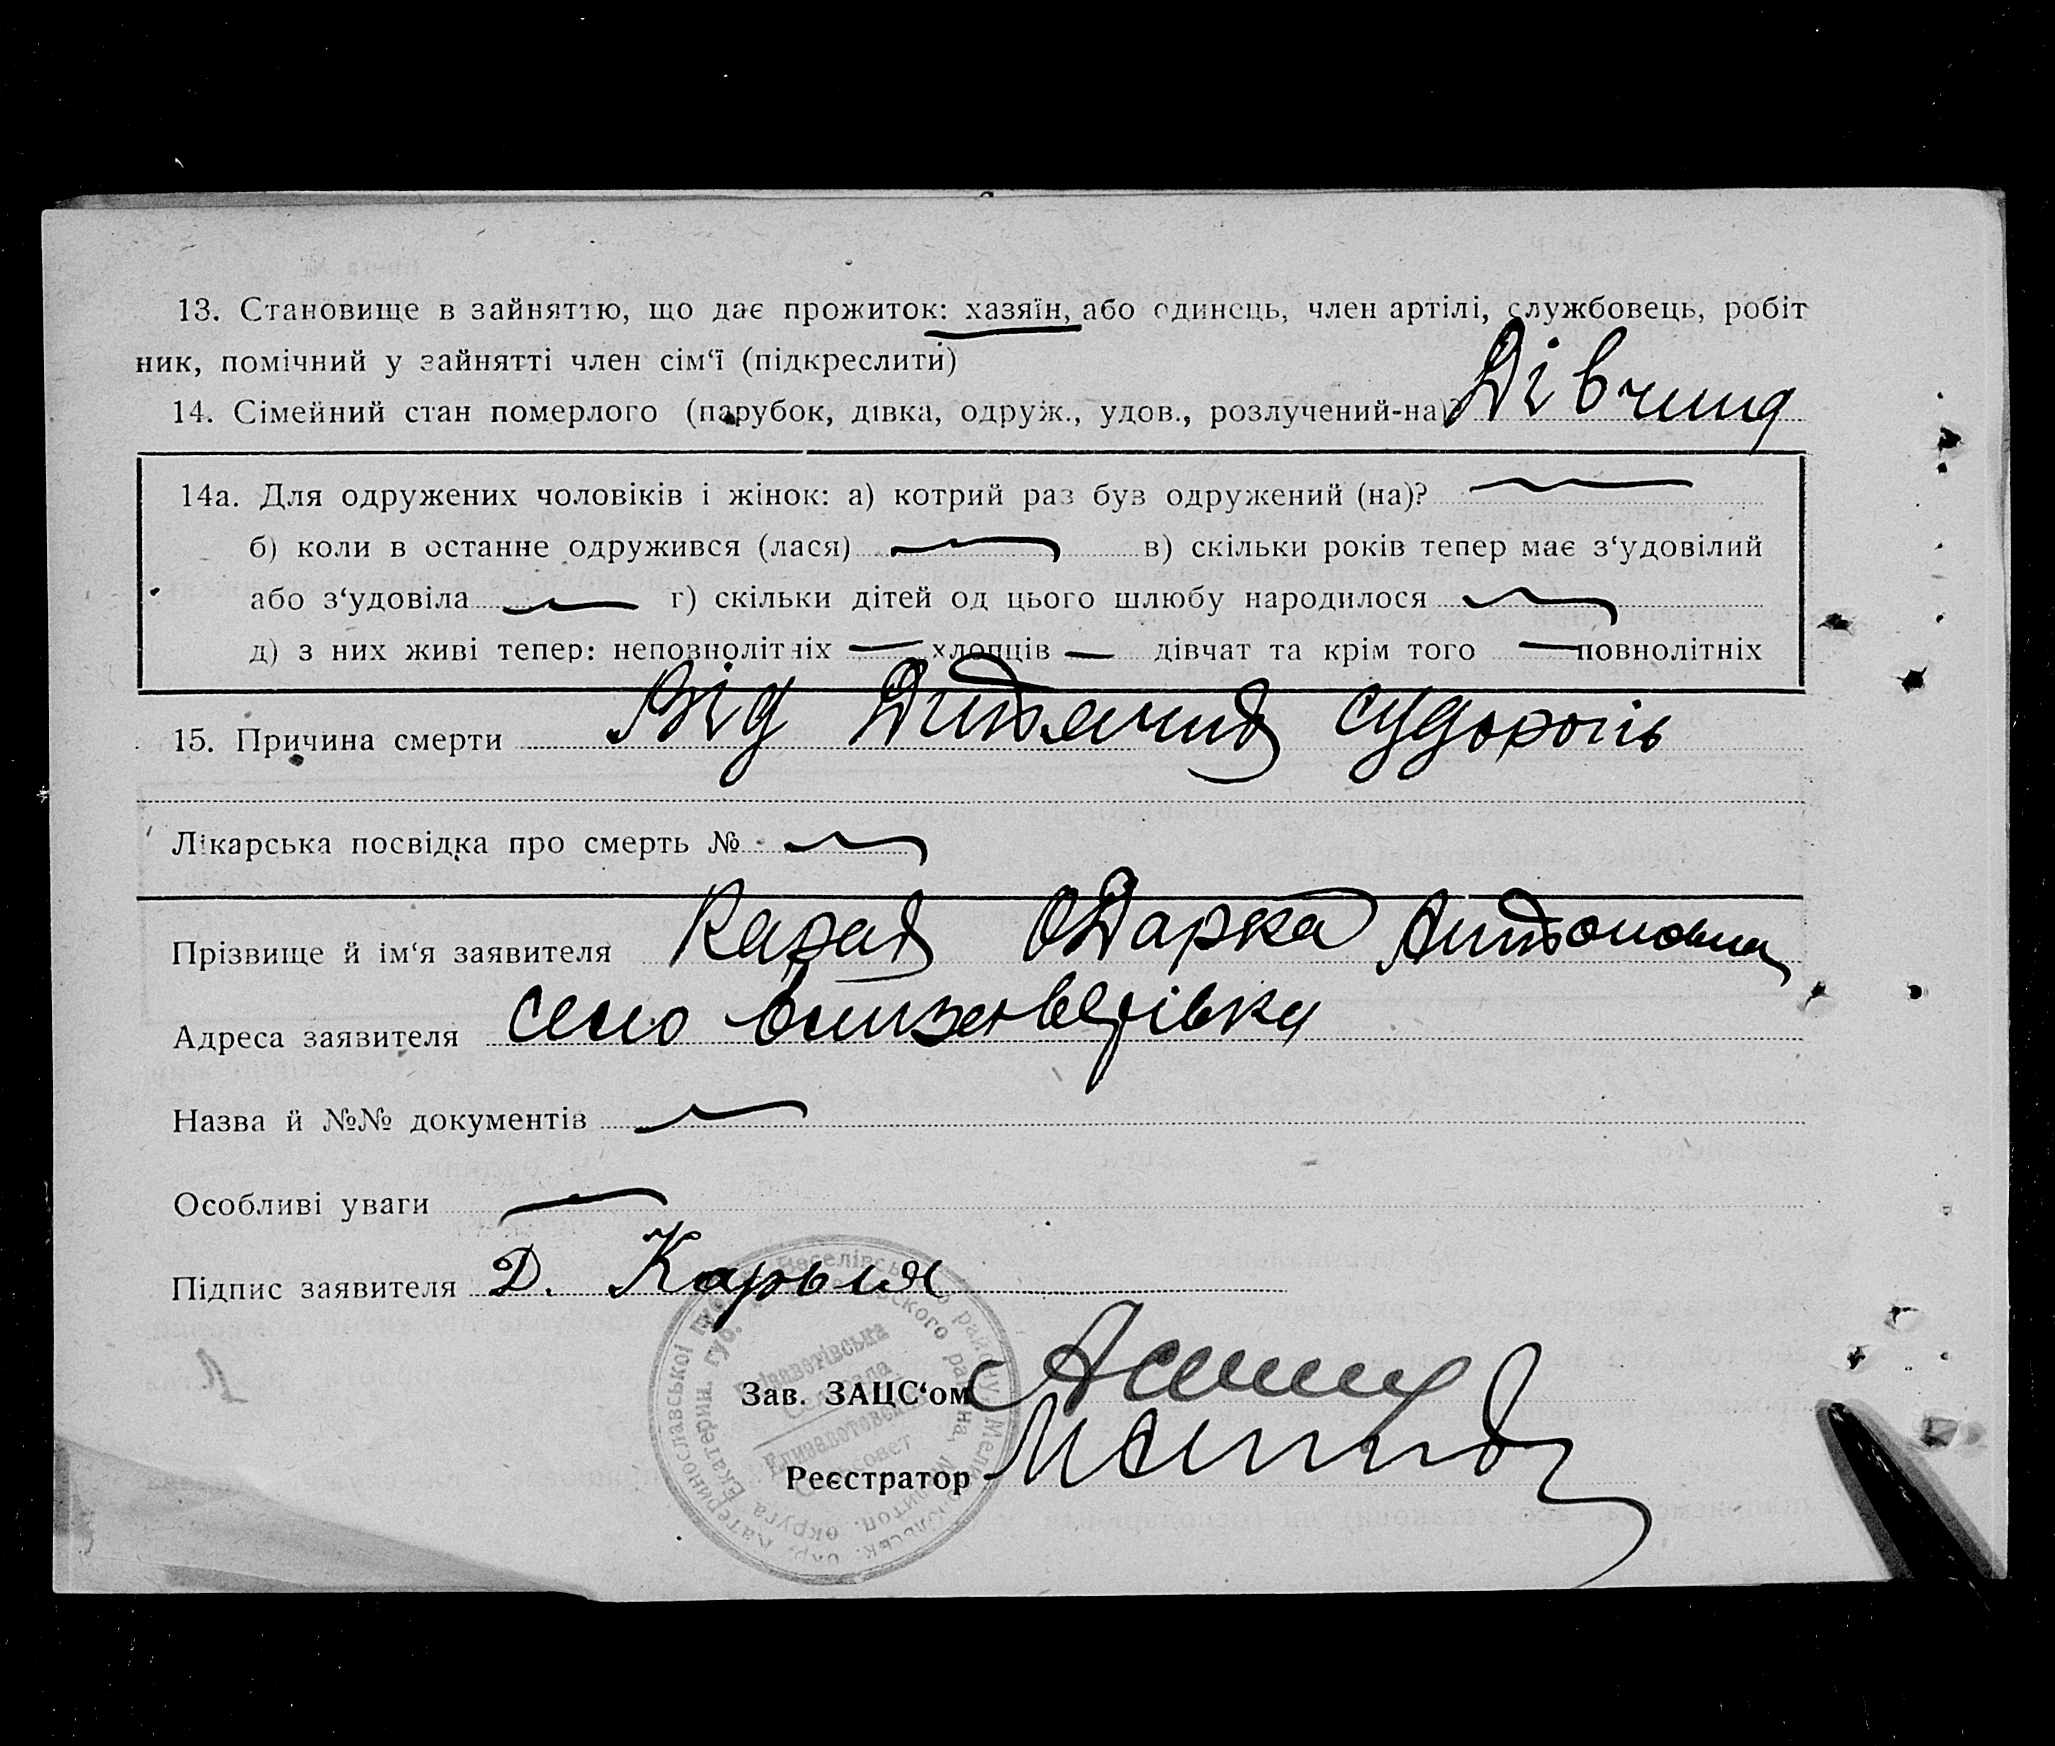 13. Становище в зайняттю, що дає прожиток: хазяїн, або одинець, член артілі, службовець, робіт
ник, помічний у зайнятті член сім‘ї (підкреслити)
14. Сімейний стан померлого (парубок, дівка, одруж., удов., розлучений-на)? Дівчина
14а. Для одружених чоловіків і жінок: а) котрий раз був одружений (на)?
б) коли в останне одружився (лася) в) скільки років тепер має з‘удовілий
або з‘удовіла г) скільки дітей од цього шлюбу народилося
д) з них живі тепер: неповнолітніх — хлопців — дівчат та крім того — повнолітніх
15. Причина смерти Від Дитячих судорогів
Лікарська посвідка про смерть №
Прізвище й ім‘я заявителя Одарка Антоновна
Адреса заявителя село Єлизаветівка
Назва й №№ документів
Особливі уваги
Підпис заявителя Д.
Зав. ЗАЦС‘ом
Реєстратор
Веселівського району Мелітопольськ. окр. Катеринославської губ.
района, Мелитоп. округа Екатерин. губ.
Єлізаветівська
Сельрада
Елизаветовский
Сельсовет